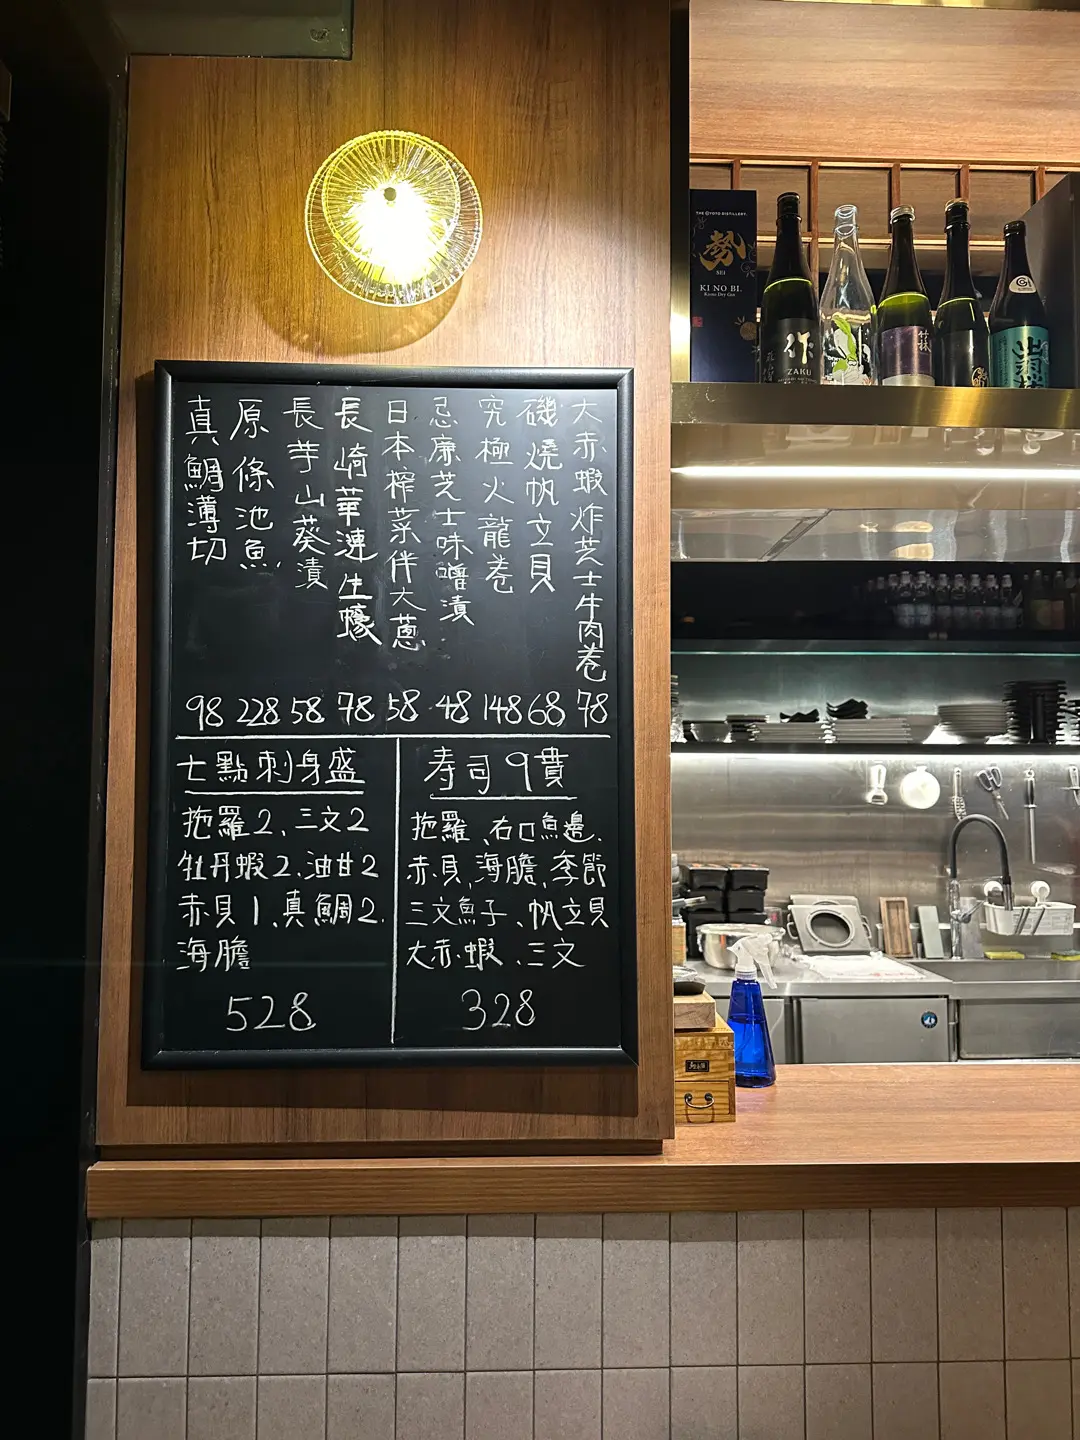 大赤蝦炸芝士牛肉卷
78
磯燒帆立貝
68
究極火龍卷
148
忌廉芝士味噌漬
48
日本榨菜伴大蔥
58
長崎華漣生蠔
78
長芋山葵漬
58
原條池魚
228
真鯛薄切
98
七點刺身盛
拖羅2、三文2
牡丹蝦2、油甘2
赤貝1、真鯛2、
海膽
528
寿司9貫
拖羅、右口魚邊、
赤貝、海膽、季節
三文魚子、帆立貝
大赤蝦、三文
328
THE KYOTO DISTILLERY
勢
SEI
KI NO BI
Kyoto Dry Gin
作
ZAKU
竹林
GI